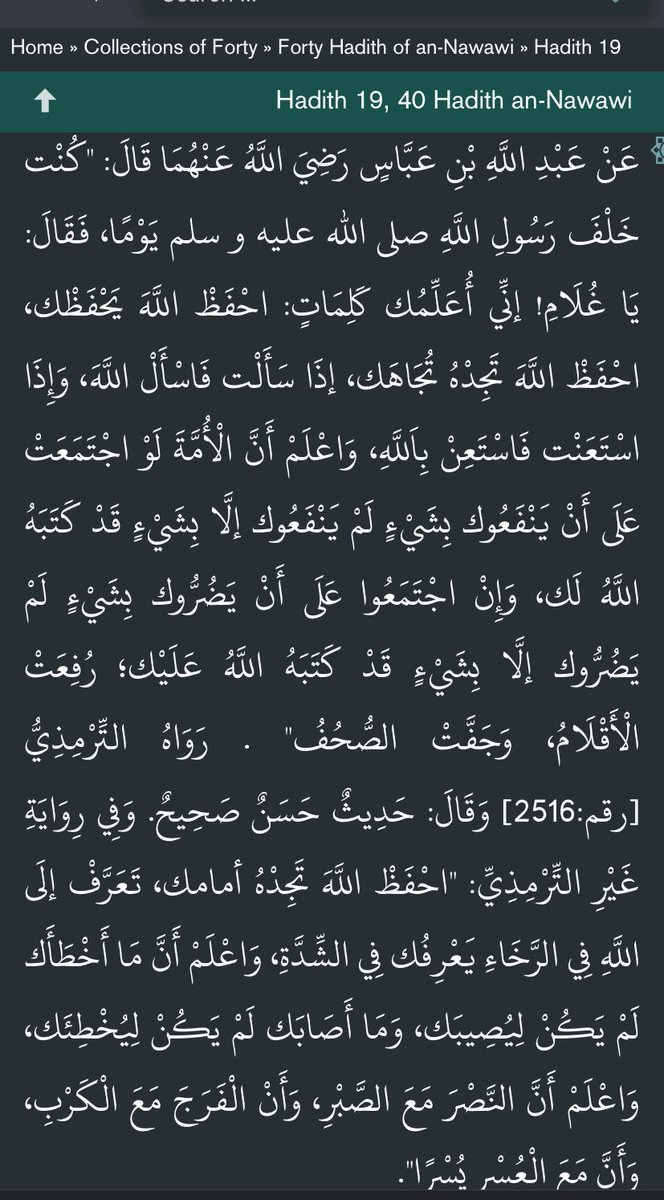 Home » Collections of Forty » Forty Hadith of an-Nawawi » Hadith 19
Hadith 19, 40 Hadith an-Nawawi
عَنْ عَبْدِ اللَّهِ بْنِ عَبَّاسٍ رَضِيَ اللَّهُ عَنْهُمَا قَالَ: "كُنْت
خَلْفَ رَسُولِ اللَّهِ صلى الله عليه و سلم يَوْمًا، فَقَالَ:
يَا غُلَامِ! إنِّي أُعَلِّمُك كَلِمَاتٍ: احْفَظْ اللَّهَ يَحْفَظْك،
احْفَظْ اللَّهَ تَجِدْهُ تُجَاهَك، إذَا سَأَلْت فَاسْأَلْ اللَّهَ، وَإِذَا
اسْتَعَنْت فَاسْتَعِنْ بِاَللَّهِ، وَاعْلَمْ أَنَّ الْأُمَّةَ لَوْ اجْتَمَعَتْ
عَلَى أَنْ يَنْفَعُوك بِشَيْءٍ لَمْ يَنْفَعُوك إلَّا بِشَيْءٍ قَدْ كَتَبَهُ
اللَّهُ لَك، وَإِنْ اجْتَمَعُوا عَلَى أَنْ يَضُرُّوك بِشَيْءٍ لَمْ
يَضُرُّوك إلَّا بِشَيْءٍ قَدْ كَتَبَهُ اللَّهُ عَلَيْك؛ رُفِعَتْ
الْأَقْلَامُ، وَجَفَّتْ الصُّحُفُ" . رَوَاهُ التِّرْمِذِيُّ
[رقم:2516] وَقَالَ: حَدِيثٌ حَسَنٌ صَحِيحٌ. وَفِي رِوَايَةِ
غَيْرِ التِّرْمِذِيِّ: "احْفَظْ اللَّهَ تَجِدْهُ أمامك، تَعَرَّفْ إلَى
اللَّهِ فِي الرَّخَاءِ يَعْرِفُك فِي الشِّدَّةِ، وَاعْلَمْ أَنَّ مَا أَخْطَأَك
لَمْ يَكُنْ لِيُصِيبَك، وَمَا أَصَابَك لَمْ يَكُنْ لِيُخْطِئَك،
وَاعْلَمْ أَنَّ النَّصْرَ مَعَ الصَّبْرِ، وَأَنْ الْفَرَجَ مَعَ الْكَرْبِ،
وَأَنَّ مَعَ الْعُسْرِ يُسْرًا".